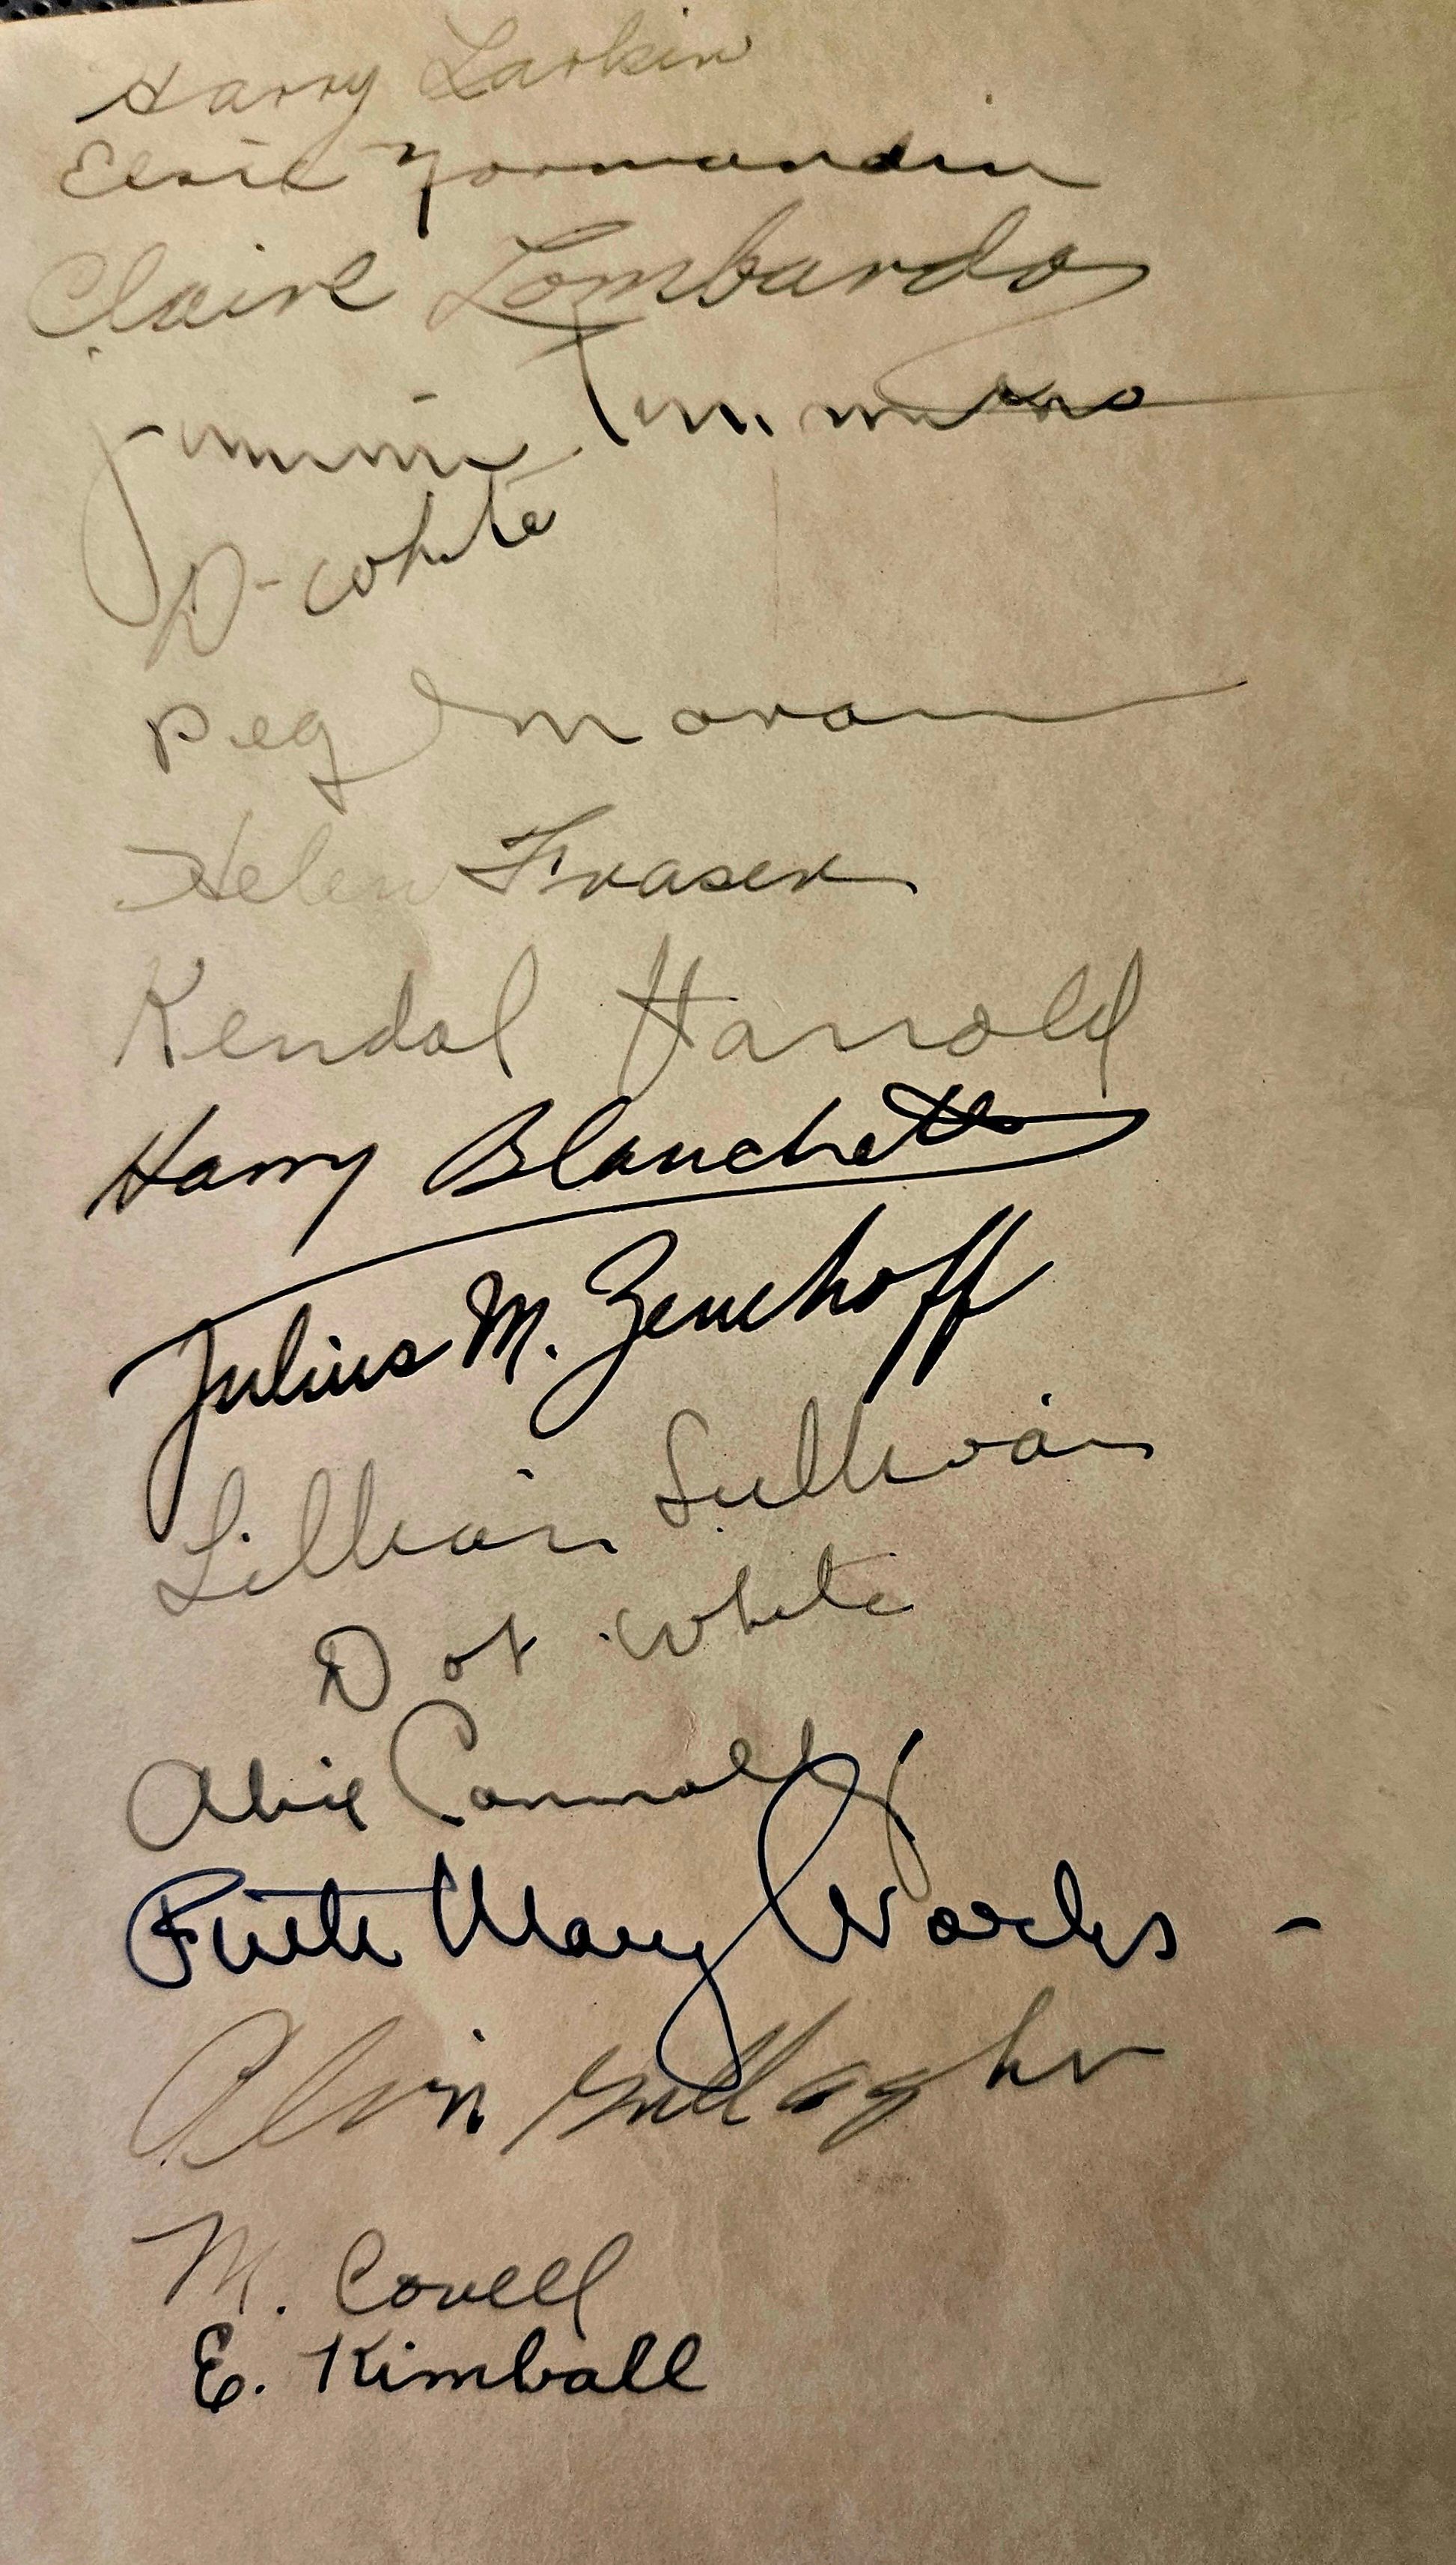 Harry Larkin
Elsie Normandin
Claire Lombardo
Jimmie Timmins
D-White
Peg Moran
Helen Fraser
Kendal Harrold
Harry Blanchette
Julius M. Zenchoff
Lillian Sullivan
Dot White
Alice Connolly
Ruth Mary Works -
Alvin Gallagher
M. Covell
E. Kimball